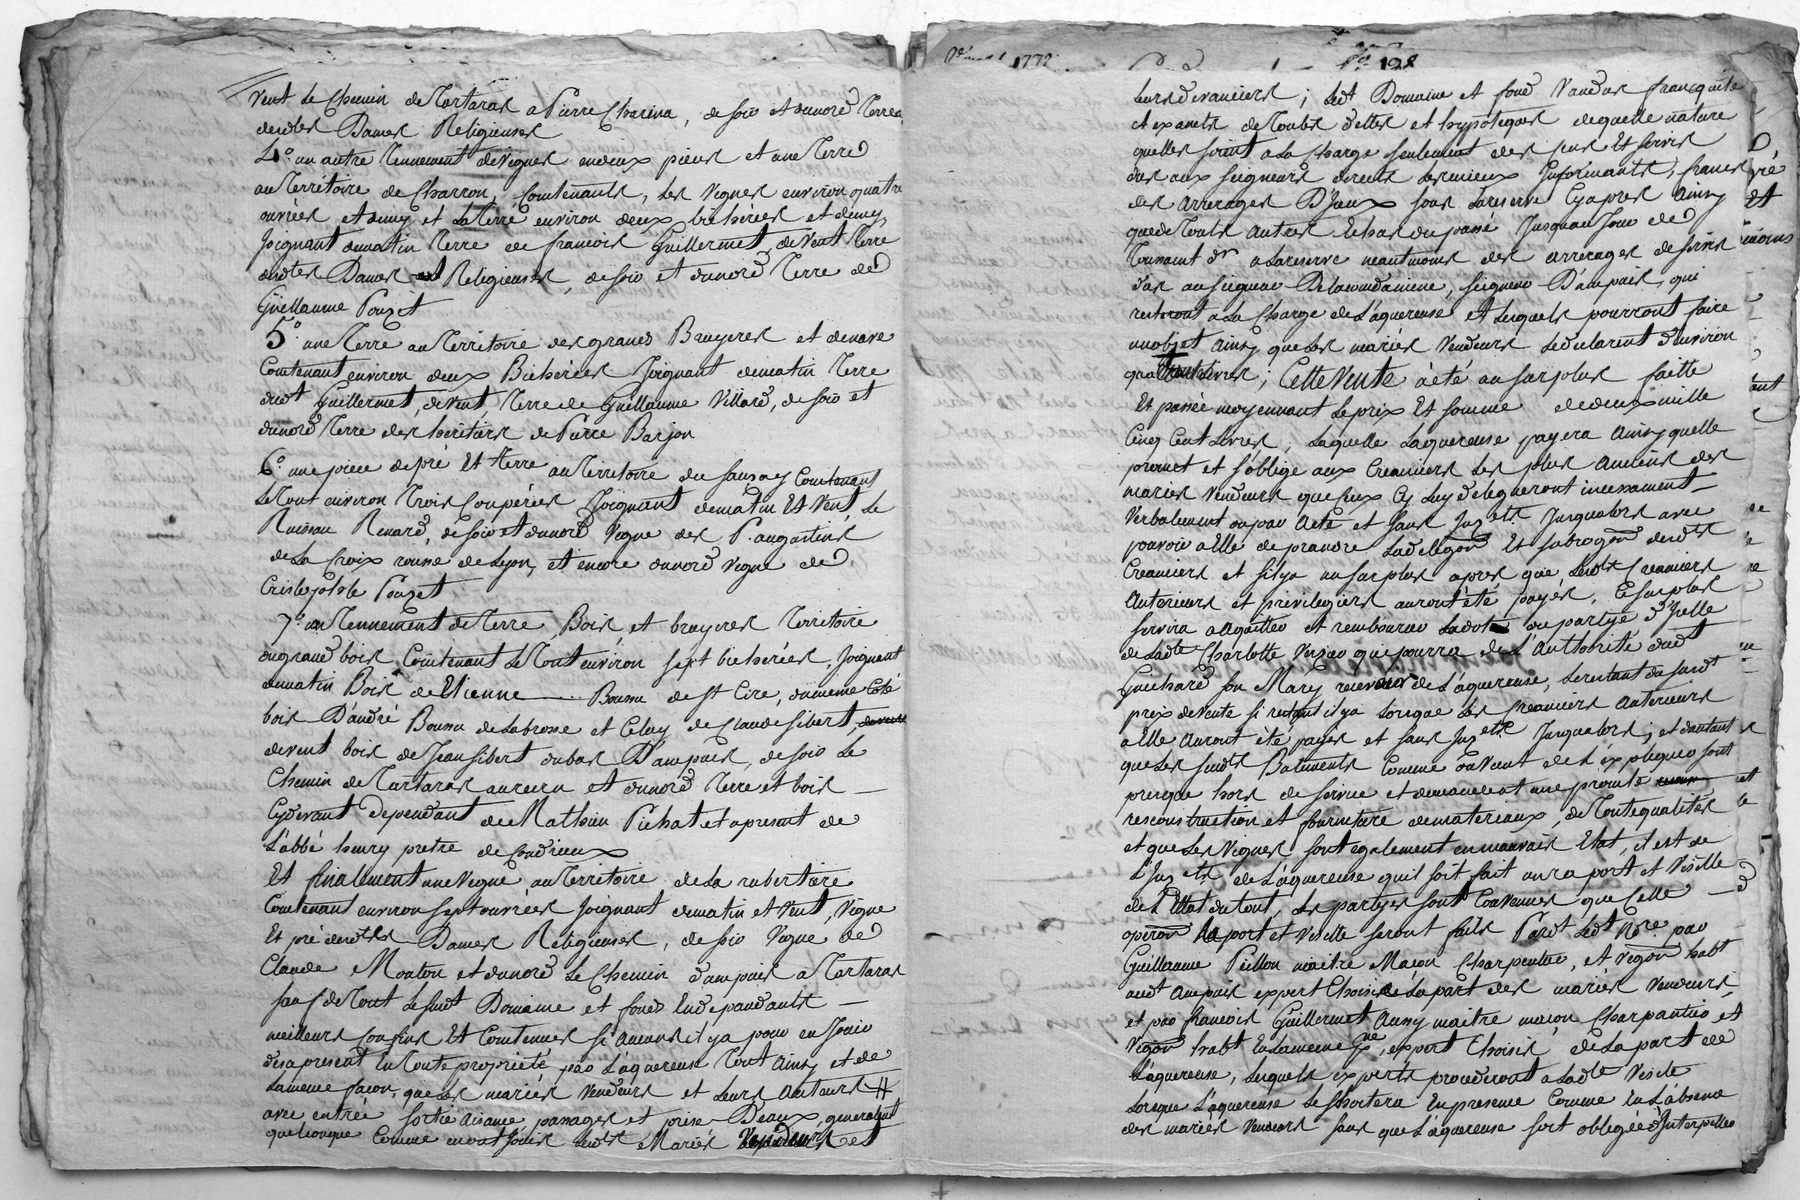 vent le Chemin de Tartaras a Pierre Charina, de soir et dunord Terre
desdtes Dames Religieuses
4.o un autre tennement de vignes endeux pieces et une Terre
au Territoire de Charron, Contenants, les vignes environ quatre
ouvrées et demy et La Terre environ deux bicherées et demy,
Joignant dematin Terre de francois Guillermet, devent Terre
desdtes Dames Religieuses, desoir et dunord Terre de
Guillaume Pouzet
5.o une Terre au Territoire des grands Bruyeres et
Contenant environ deux Bicherées Joignant dematin Terre
dudt Guillermet, devent Terre de Guillaume Villard, de soir et
dunord Terre des heritiers de Pierre Barjon
6.o une piece depré Et Terre au Territoire du Sauzey Contenant
le Tout environ Trois Coupérées Joignant dematin Et Vent, Le
Ruisseau Renard, desoir et dunord Vigne des P. augustins
de La Croix rousse de Lyon, et encore dunord vigne de
Cristophle Pouzet
7.o un Tennement de Terre, Bois, et bruyeres Territoire
dugrand bois, Contenant Le Tout environ sept bicherées, Joignant
dematin Bois de Etienne Boussu de St Cire, dumeme Coté
bois D'andré Boussu de Labrosse et Celuy de Claude Sibert,
devent bois de Jean Sibert dubas D'ampuis, de soir Le
Chemin de Tartaras et dunord Terre et bois
Cydevant Dependant de Mathieu Pichat et apresent de
L'abbé henry pretre de Condrieux
Et finalement une Vigne au Territoire de La rubertiere
Contenant environ sept ouvrées Joignant dematin et Vent, Vigne
Et pré desdtes Dames Religieuses, de soir Vigne de
Claude Mouton et dunord Le Chemin d'ampuis a Tartaras
sauf de Tout Lesusdt Domaine et fonds En dependants
meilleurs Confins Et Contenues si Aucuns il y a pour en Jouir
des apresent En Toute propriété par L'aquereuse Tout Ainsy et de
La meme façon, que Les mariés Vendeurs et Leurs Auteurs #
avec entrée sortie aisance, passages et prise D'eaux, generalement
quelconque Comme en ont Jouis Lesdts Mariés Vendeurs et
1772
198
Leurs devanciers; Ledt Domaine et fond Vendus francs quitte
et exempts de Toutes dettes et hypoteques dequelle nature
quelles soient a La Charge seulement des Cens Et servis
dus aux seigneurs directs
des arrerages D'Iceux sous La reserve Cyapres Ainsy
que de Touts Autres Echus du passé Jusqu'au Jour de
Toussaint dr a La reserve neantmoins des arrerages de servis
dus au seigneur De , seigneur D'ampuis, qui
resteront a La Charge de L'aquereuse et Lesquels pourront faire
un objet Ainsy que Les mariés Vendeurs Le declarent D'environ
Livres; Cette Vente a été au surplus faitte
Et passée moyennant Le prix Et somme de deux mille
Cinq Cent Livres, Laquelle L'aquereuse payera Ainsy quelle
promet et s'oblige aux Creanciers Les plus Anciens des
mariés Vendeurs que Ceux Cy Luy delegueront incessament
Verbalement ou par Acte et sans Jusqualors avec
pouvoir a Elle de prandre La delegaon Et subrogaon desdts
Creanciers et sil y a un surplus apres que Lesdts Creanciers
Anterieurs et privilegiers auront été payés, Ce surplus
servira a Aquitter et rembourser La dot ou partye d'Icelle
de Ladte Charlotte que pourra de L'Authorité dudt
Guichard son Mary recevoir de L'aquereuse, Le restant du susdt
prix de Vente si restant il y a Lorsque Les Creanciers Anterieurs
a Elle Auront été payés et sans Jusqualors; et dautant
que Les susdts Batiments Comme on Vient de L'expliquer sont
presque hors de service et demandent une prompte
resconstruction et fourniture de materiaux, de Toutes qualités
et que Les Vignes sont egalement en mauvais Etat, il est de
L' de L'aquereuse qu'il soit fait un raport et Visitte
de L'Etat du tout, Les partyes sont Convenues que Cette
operaon raport et Visitte seront faits Pardt Ledt Nore par
Guillaume Peillon maitre Macon Charpentier, et Vigon habt
audt Ampuis expert Choisi de La part des mariés Vendeurs,
et par francois Guillermet Aussy maitre macon Charpantier et
Vigon habt En La meme , expert Choisi de La part de
L'aquereuse, Lesquels experts procederont a Ladte Visite
Lorsque L'aquereuse Le En presence Comme En L'absence
des mariés Vendeurs sans que L'aquereuse soit obligée d'Interpeller